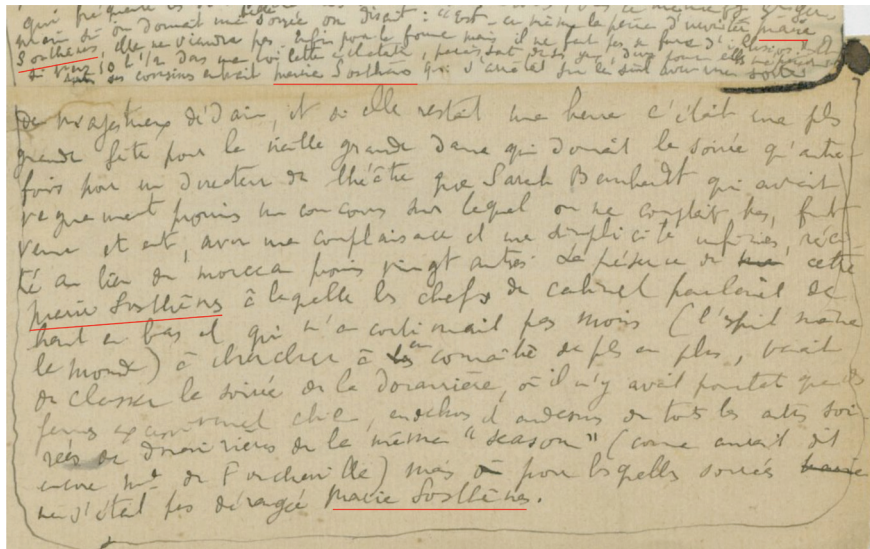 qui fréquente
on donnait une soirée on disait : "Est-ce même la peine d'inviter Marie
Sosthènes, elle ne viendra pas enfin pour la forme mais il ne faut pas se faire d'illusions." Et
si vers 10 h 1/2 dans une toilette
ses cousins entrait Marie Sosthènes qui s'arrêtait sur le seuil avec une sorte
de majestueux dédain, et si elle restait une heure c'était une plus
grande fête pour la vieille grande dame qui donnait la soirée qu'autre-
fois pour un directeur de théâtre que Sarah Bernhardt qui avait
vaguement promis un concours sur lequel on ne comptait pas, fût
venue et eût, avec une complaisance et une simplicité infinies, réci-
té au lieu du morceau promis vingt autres. La présence de cette
Marie Sosthènes à laquelle les chefs de cabinet parlaient de
haut en bas et qui n'en continuait pas moins (l'esprit mène
le monde) à chercher à en connaître de plus en plus, venait
de classer la soirée de la douairière, où il n'y avait pourtant que des
femmes excessivement chic, en dehors et au dessus de toutes les autres soi-
rées de douairières de la même "season" (comme aurait dit
encore Me de Forcheville) mais pour lesquelles soirées
ne s'était pas dérangée Marie Sosthènes.